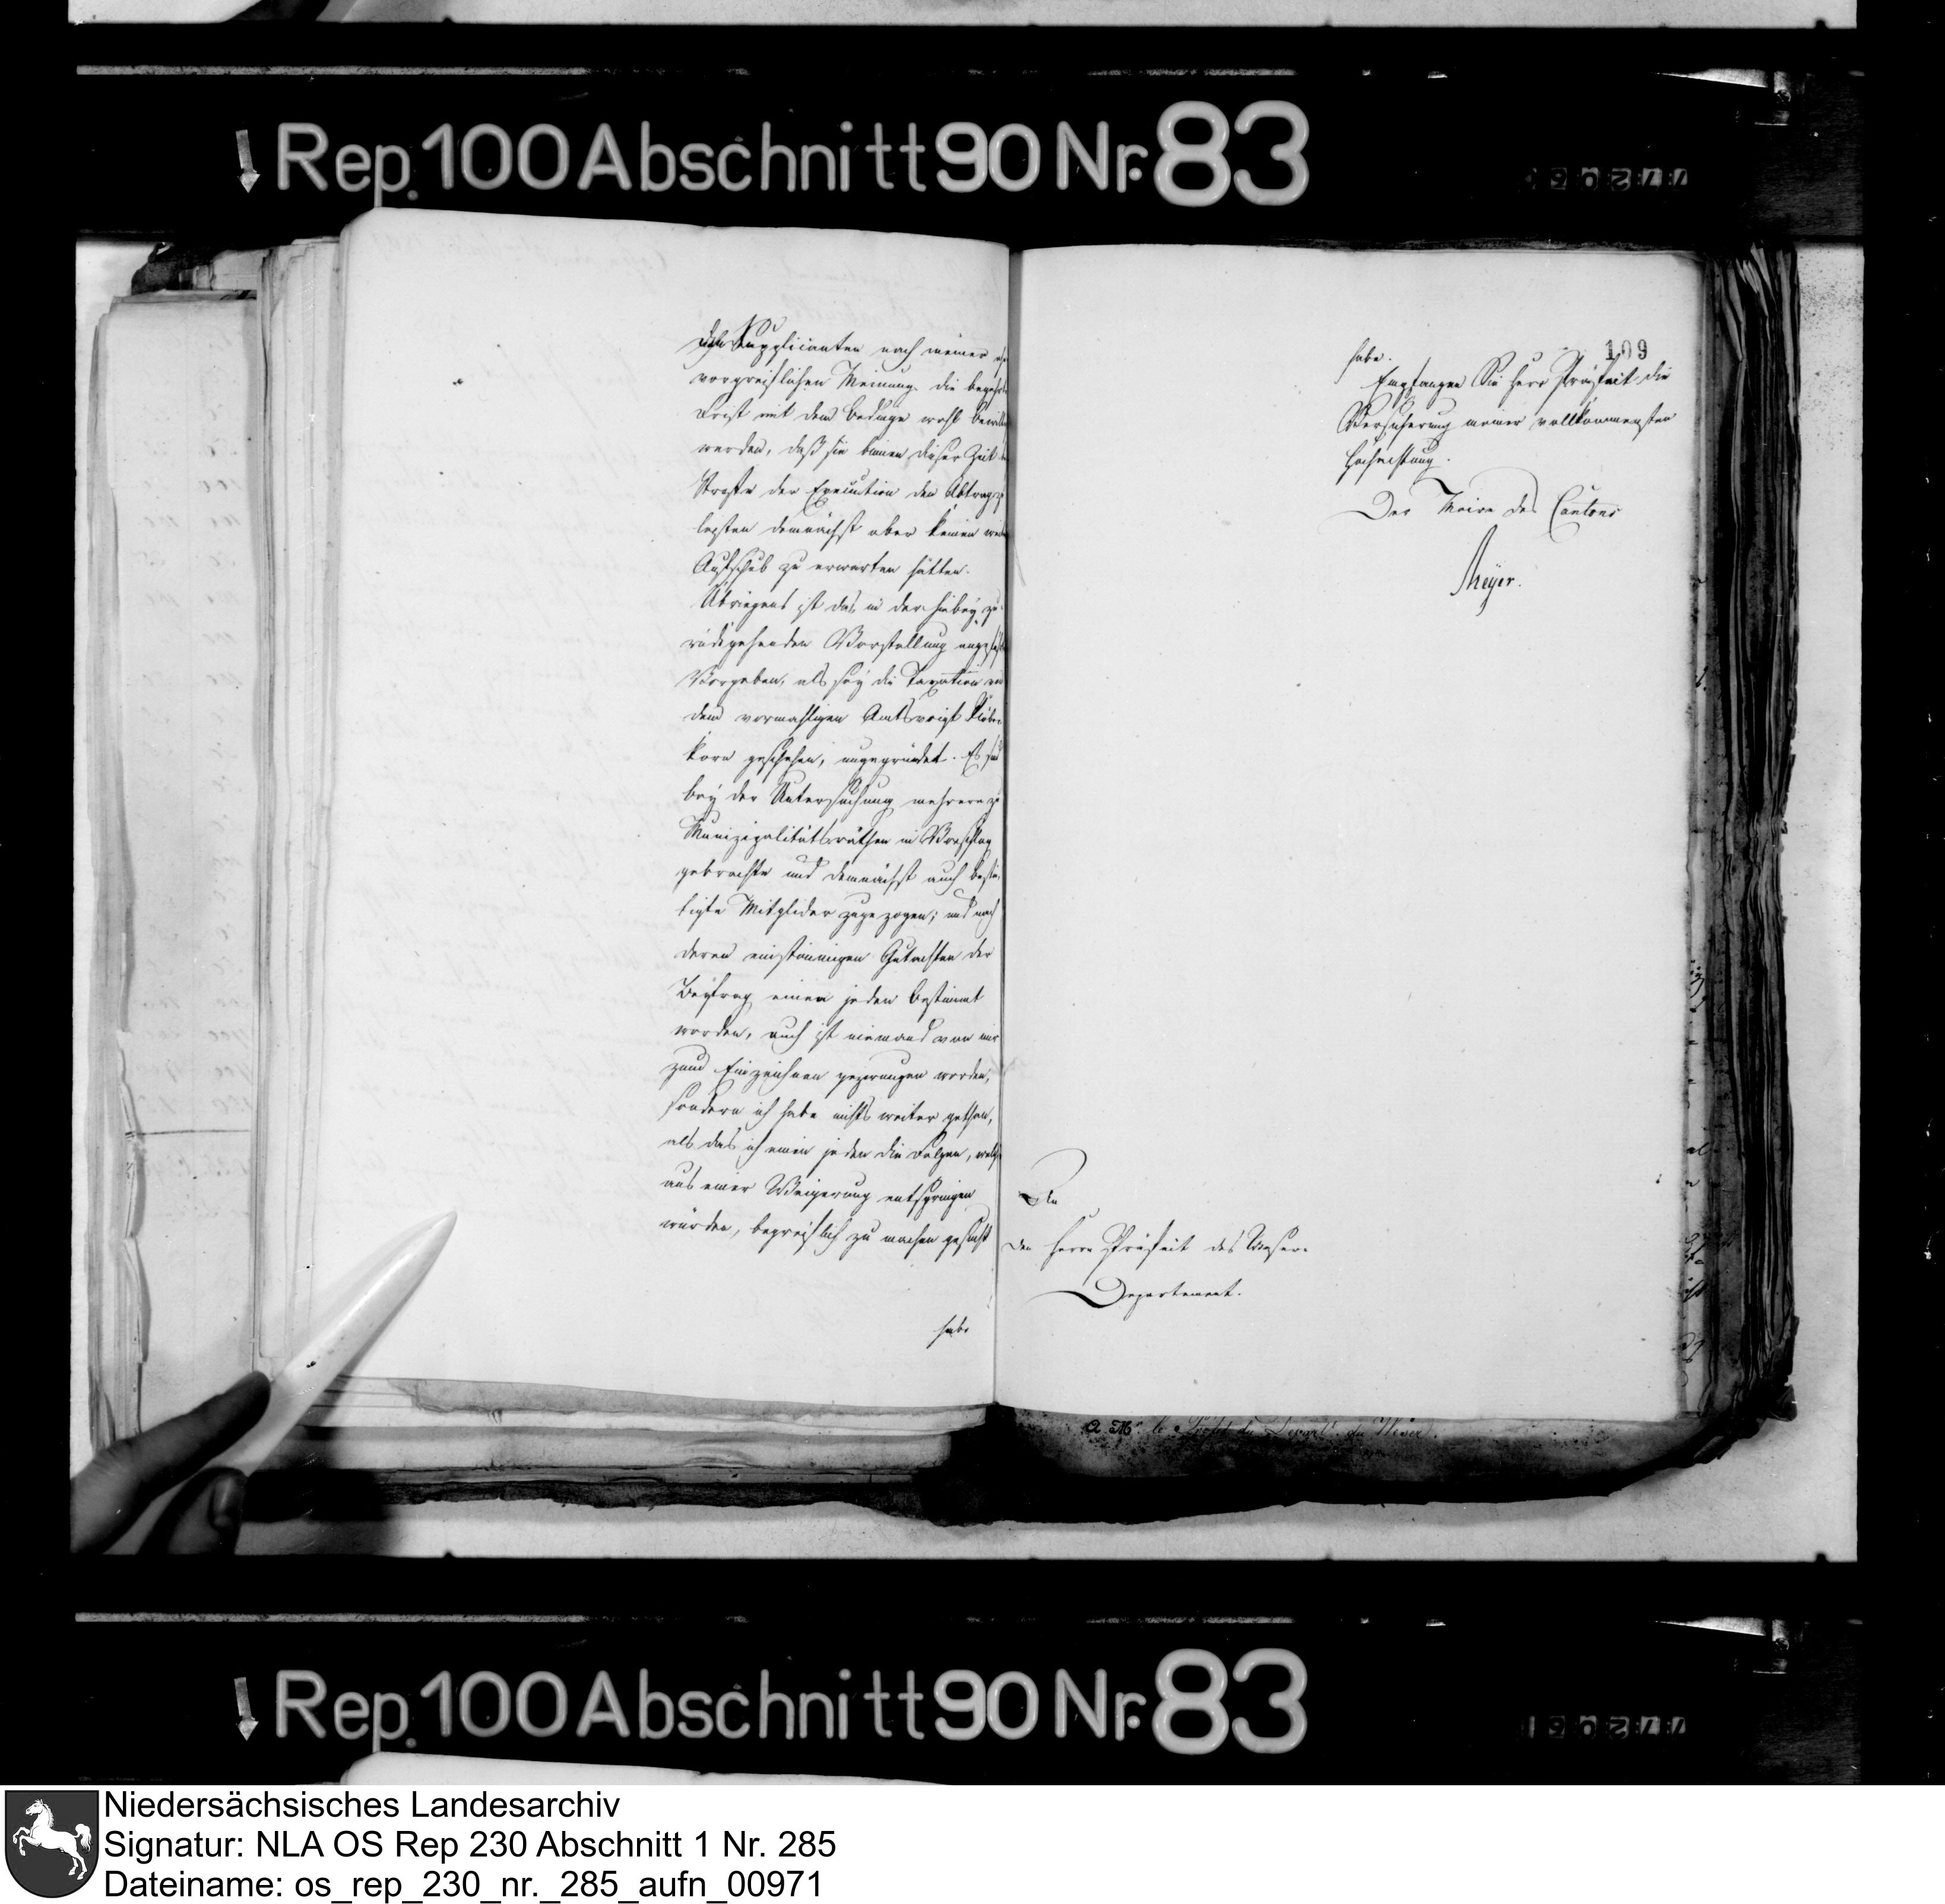 Rep. 100 Abschnitt 90 Nr. 83
den Supplicanten nach meiner
vorgreiflichen Meinung die
Frist mit dem Bedinge wohl
werden, daß sie binnen dieser Zeit
Strafe der Execution den Abtrag
leisten demnächst aber keinen
Aufschub zu erwarten hätten.
Übrigens ist das in der hiebey zu-
rückgehenden Vorstellung
Vorgeben, als sey die Taxation
dem vormaligen Amtsvoigt
korn geschehen, ungegründet. Es sind
bey der Untersuchung mehrere zu
Munizipalitätsräthen in Vorschlag
gebrachte und demnächst auch bestä-
tigte Mitglider zugezogen; und nach
deren einstimmigen Gutachten der
Beytrag einen jeden bestimmt
worden, auch ist niemand von mir
zum Einzeichnen gezwungen worden,
sondern ich habe nichts weiter gethan,
als das ich einen jeden die Folgen, welche
aus einer Weigerung entspringen
würden, begreiflich zu machen gesucht
habe
109
habe.
Empfangen Sie Herr Präfect die
Versicherung meiner vollkommensten
Hochachtung.
Der Maire des Cantons
Meyer.
An
den Herrn Präfect des Weser-
Departement.
a Mr. le Préfet du Départ. du Weser.
Rep. 100 Abschnitt 90 Nr. 83
Niedersächsisches Landesarchiv
Signatur: NLA OS Rep 230 Abschnitt 1 Nr. 285
Dateiname: os_rep_230_nr._285_aufn_00971